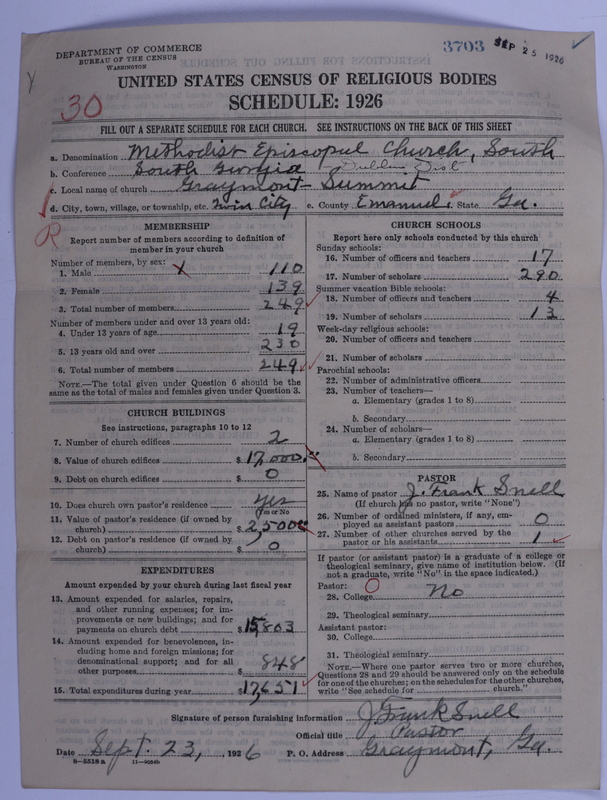 DEPARTMENT OF COMMERCE
BUREAU OF THE CENSUS
WASHINGTON
3703 SEP 25 1926
UNITED STATES CENSUS OF RELIGIOUS BODIES
SCHEDULE: 1926
30
FILL OUT A SEPARATE SCHEDULE FOR EACH CHURCH. SEE INSTRUCTIONS ON THE BACK OF THIS SHEET
a. Denomination Methodist Episcopal Church, South
b. Conference South Georgia Dublin Dist
c. Local name of church Graymont-Summit
d. City, town, village, or township, etc. Twin City e. County Emanuel f. State Ga.
R
MEMBERSHIP
Report number of members according to definition of
member in your church
Number of members, by sex:
1. Male 110
2. Female 139
3. Total number of members 249
Number of members under and over 13 years old:
4. Under 13 years of age 19
5. 13 years old and over 230
6. Total number of members 249
NOTE.—The total given under Question 6 should be
same as the total of males and females given under Question 3.
CHURCH BUILDINGS
See instructions, paragraphs 10 to 12
7. Number of church edifices 2
8. Value of church edifices $ 17,000.00
9. Debt on church edifices $ 0
10. Does church own pastor's residence yes
Yes or No
11. Value of pastor's residence (if owned by
church) $ 2,500.00
12. Debt on pastor's residence (if owned by
church) $ 0
EXPENDITURES
Amount expended by your church during last fiscal year
13. Amount expended for salaries, repairs,
and other running expenses; for im-
provements or new buildings; and for
payments on church debt $ 15,803
14. Amount expended for benevolences, in-
cluding home and foreign missions; for
denominational support; and for all
other purposes $ 848
15. Total expenditures during year $ 17,651
CHURCH SCHOOLS
Report here only schools conducted by this church
Sunday schools:
16. Number of officers and teachers 17
17. Number of scholars 290
Summer vacation Bible schools:
18. Number of officers and teachers 4
19. Number of scholars 13
Week-day religious schools:
20. Number of officers and teachers
21. Number of scholars
Parochial schools:
22. Number of administrative officers
23. Number of teachers—
a. Elementary (grades 1 to 8)
b. Secondary
24. Number of scholars—
a. Elementary (grades 1 to 8)
b. Secondary
PASTOR
25. Name of pastor J. Frank Snell
(If church has no pastor, write "None")
26. Number of ordained ministers, if any, em-
ployed as assistant pastors 0
27. Number of other churches served by the
pastor or his assistants 1
If pastor (or assistant pastor) is a graduate of a college or
theological seminary, give name of institution below. (If
not a graduate, write "No" in the space indicated.)
Pastor: O
28. College No
29. Theological seminary
Assistant pastor:
30. College
31. Theological seminary
NOTE.—Where one pastor serves two or more churches,
Questions 28 and 29 should be answered only on the schedule
for one of the churches; on the schedules for the other churches,
write "See schedule for church."
Signature of person furnishing information J Frank Snell
Official title Pastor
Date Sept. 23, 1926 P. O. Address Graymont, Ga.
8—5518 a 11—9064b